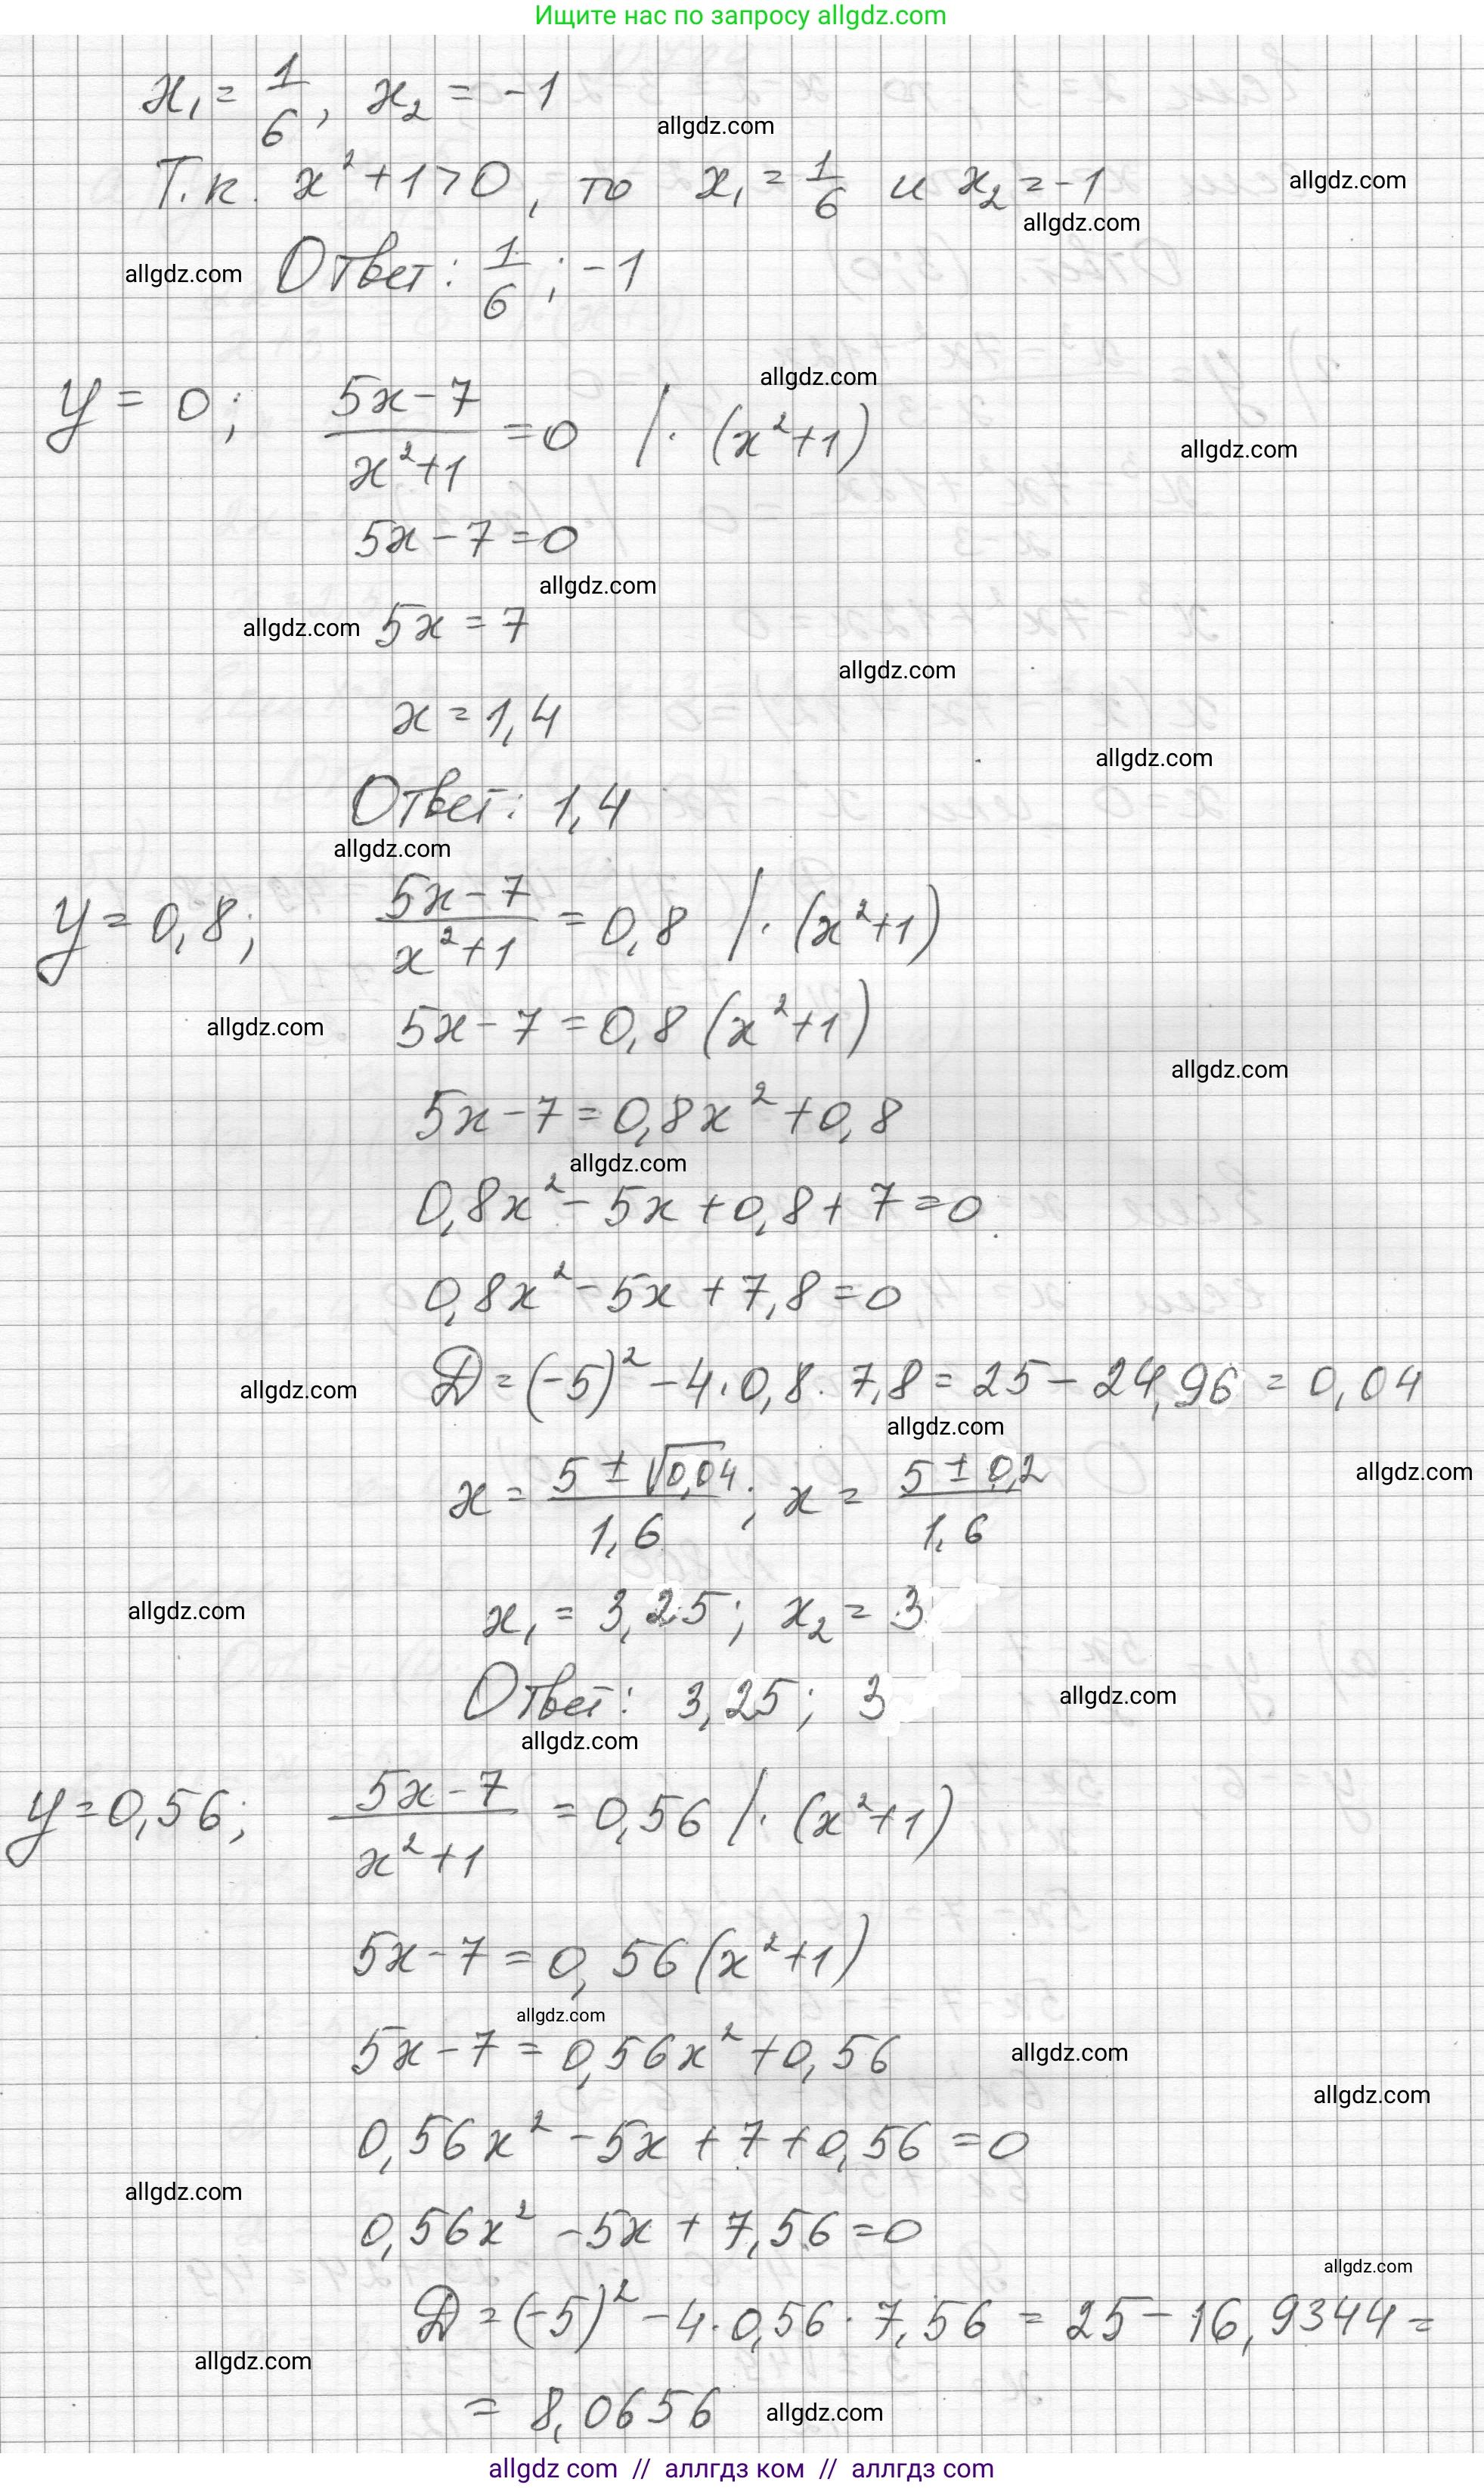 Ищите нас по запросу allgdz.com
x₁ = 1/6, x₂ = -1
allgdz.com
Т.к. x² + 1 > 0, то x₁ = 1/6 и x₂ = -1
allgdz.com
allgdz.com
allgdz.com
Ответ: 1/6; -1
allgdz.com
y = 0; (5x - 7)/(x² + 1) = 0 /· (x² + 1)
allgdz.com
5x - 7 = 0
allgdz.com
allgdz.com
5x = 7
allgdz.com
x = 1,4
allgdz.com
Ответ: 1,4
allgdz.com
y = 0,8; (5x - 7)/(x² + 1) = 0,8 /· (x² + 1)
allgdz.com
5x - 7 = 0,8 (x² + 1)
allgdz.com
5x - 7 = 0,8x² + 0,8
allgdz.com
0,8x² - 5x + 0,8 + 7 = 0
0,8x² - 5x + 7,8 = 0
allgdz.com
D = (-5)² - 4 · 0,8 · 7,8 = 25 - 24,96 = 0,04
allgdz.com
x = (5 ± √0,04)/1,6; x = (5 ± 0,2)/1,6
allgdz.com
allgdz.com
x₁ = 3,25; x₂ = 3
Ответ: 3,25; 3
allgdz.com
allgdz.com
y = 0,56; (5x - 7)/(x² + 1) = 0,56 /· (x² + 1)
5x - 7 = 0,56 (x² + 1)
allgdz.com
5x - 7 = 0,56x² + 0,56
allgdz.com
allgdz.com
0,56x² - 5x + 7 + 0,56 = 0
allgdz.com
0,56x² - 5x + 7,56 = 0
allgdz.com
D = (-5)² - 4 · 0,56 · 7,56 = 25 - 16,9344 =
allgdz.com
= 8,0656
allgdz.com
allgdz com // аллгдз ком // аллгдз com